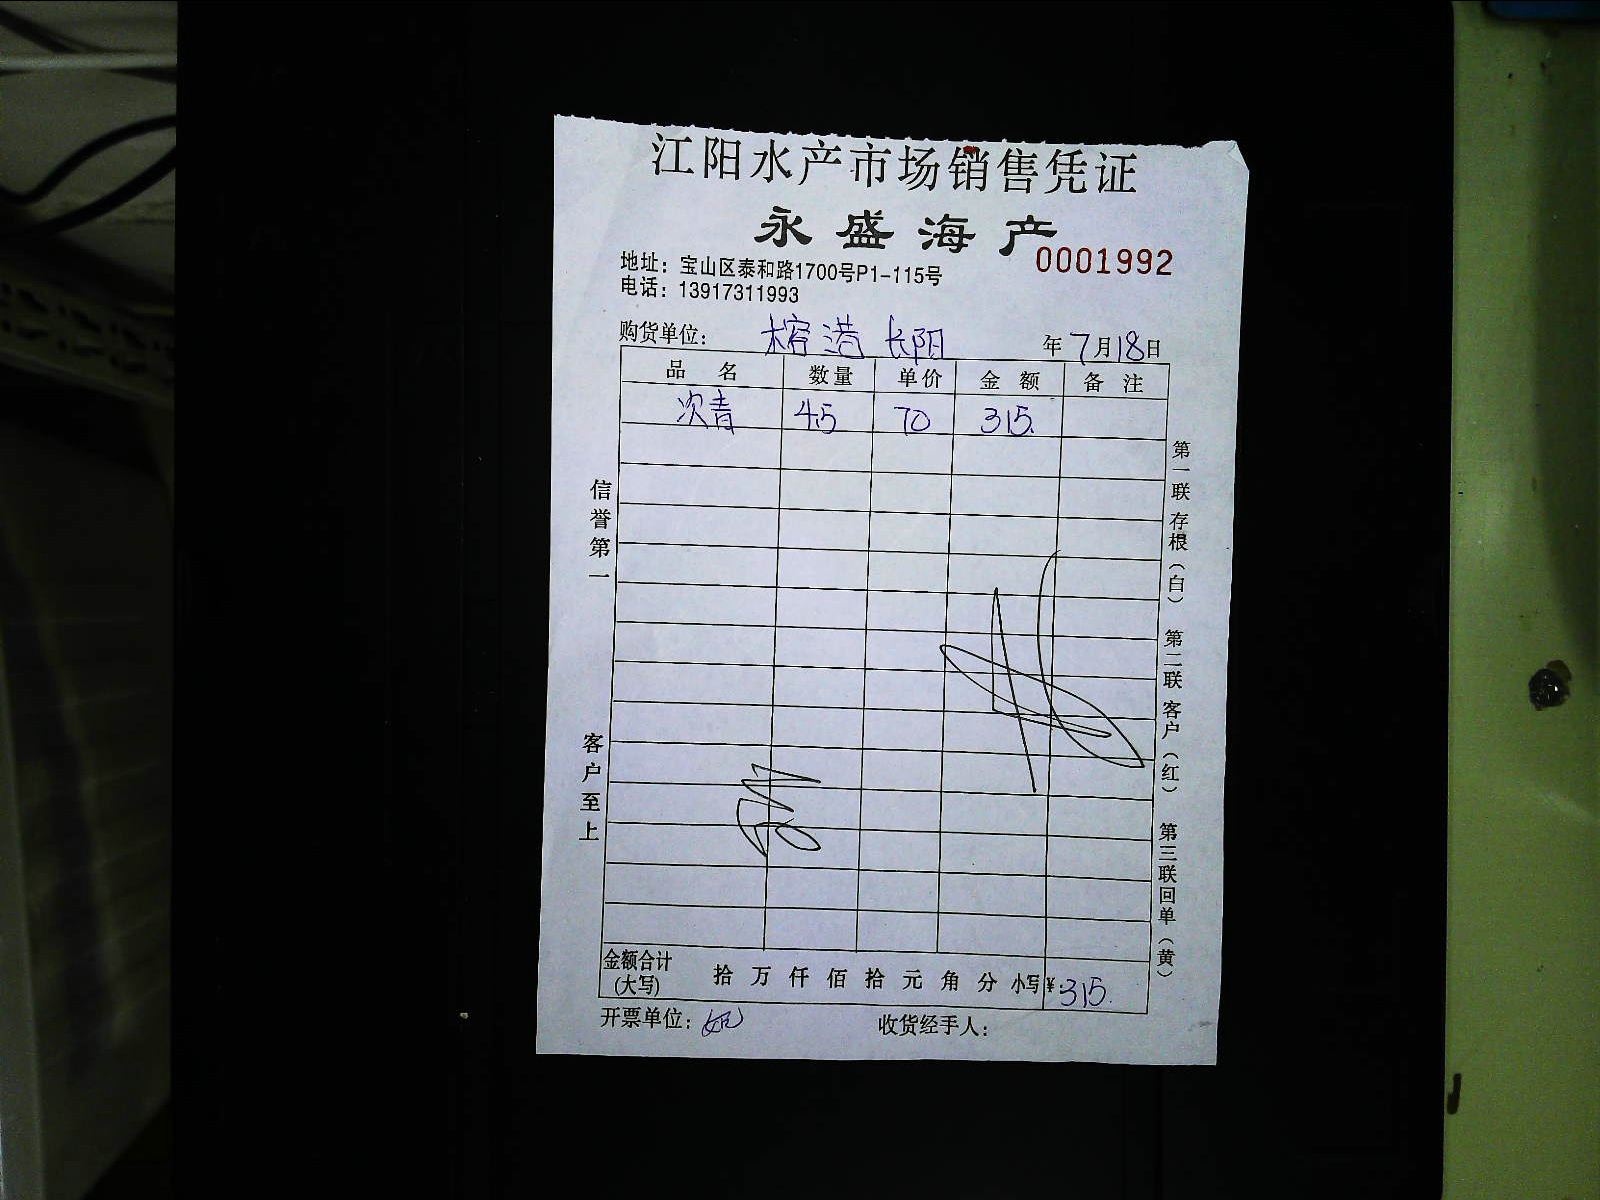 江阳水产市场销售凭证
永盛海产
0001992
地址：宝山区泰和路1700号P1-115号
电话：13917311993
购货单位： 榕港 长阳 年 7月18日
品 名 数量 单价 金 额 备 注
次青 4.5 70 315.
信誉第一
客户至上
第一联 存根（白） 第二联 客户（红） 第三联 回单（黄）
金额合计 拾 万 仟 佰 拾 元 角 分 小写 ¥:315.
(大写)
开票单位： 收货经手人：